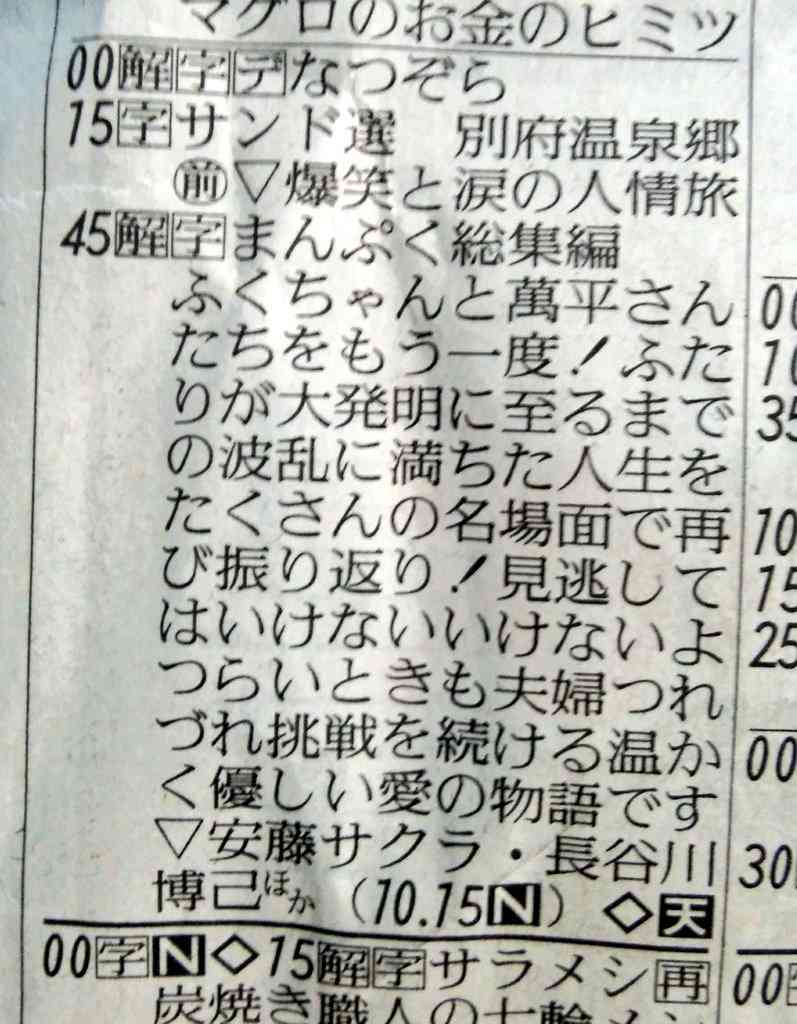 マグロのお金のヒミツ
00解字デなつぞら
15字サンド選　別府温泉郷
前▽爆笑と涙の人情旅
45解字まんぷく総集編
ふくちゃんと萬平さん
たちをもう一度！ふた
りが大発明に至るまで
の波乱に満ちた人生を
たくさんの名場面で再
び振り返り！見逃して
はいけないいけないよ
つらいときも夫婦つれ
づれ挑戦を続ける温か
く優しい愛の物語です
▽安藤サクラ・長谷川
博己ほか（10.15N）◇天
00字N◇15解字サラメシ再
炭焼き職人の七輪メシ
10
35
10
15
25
00
30
00